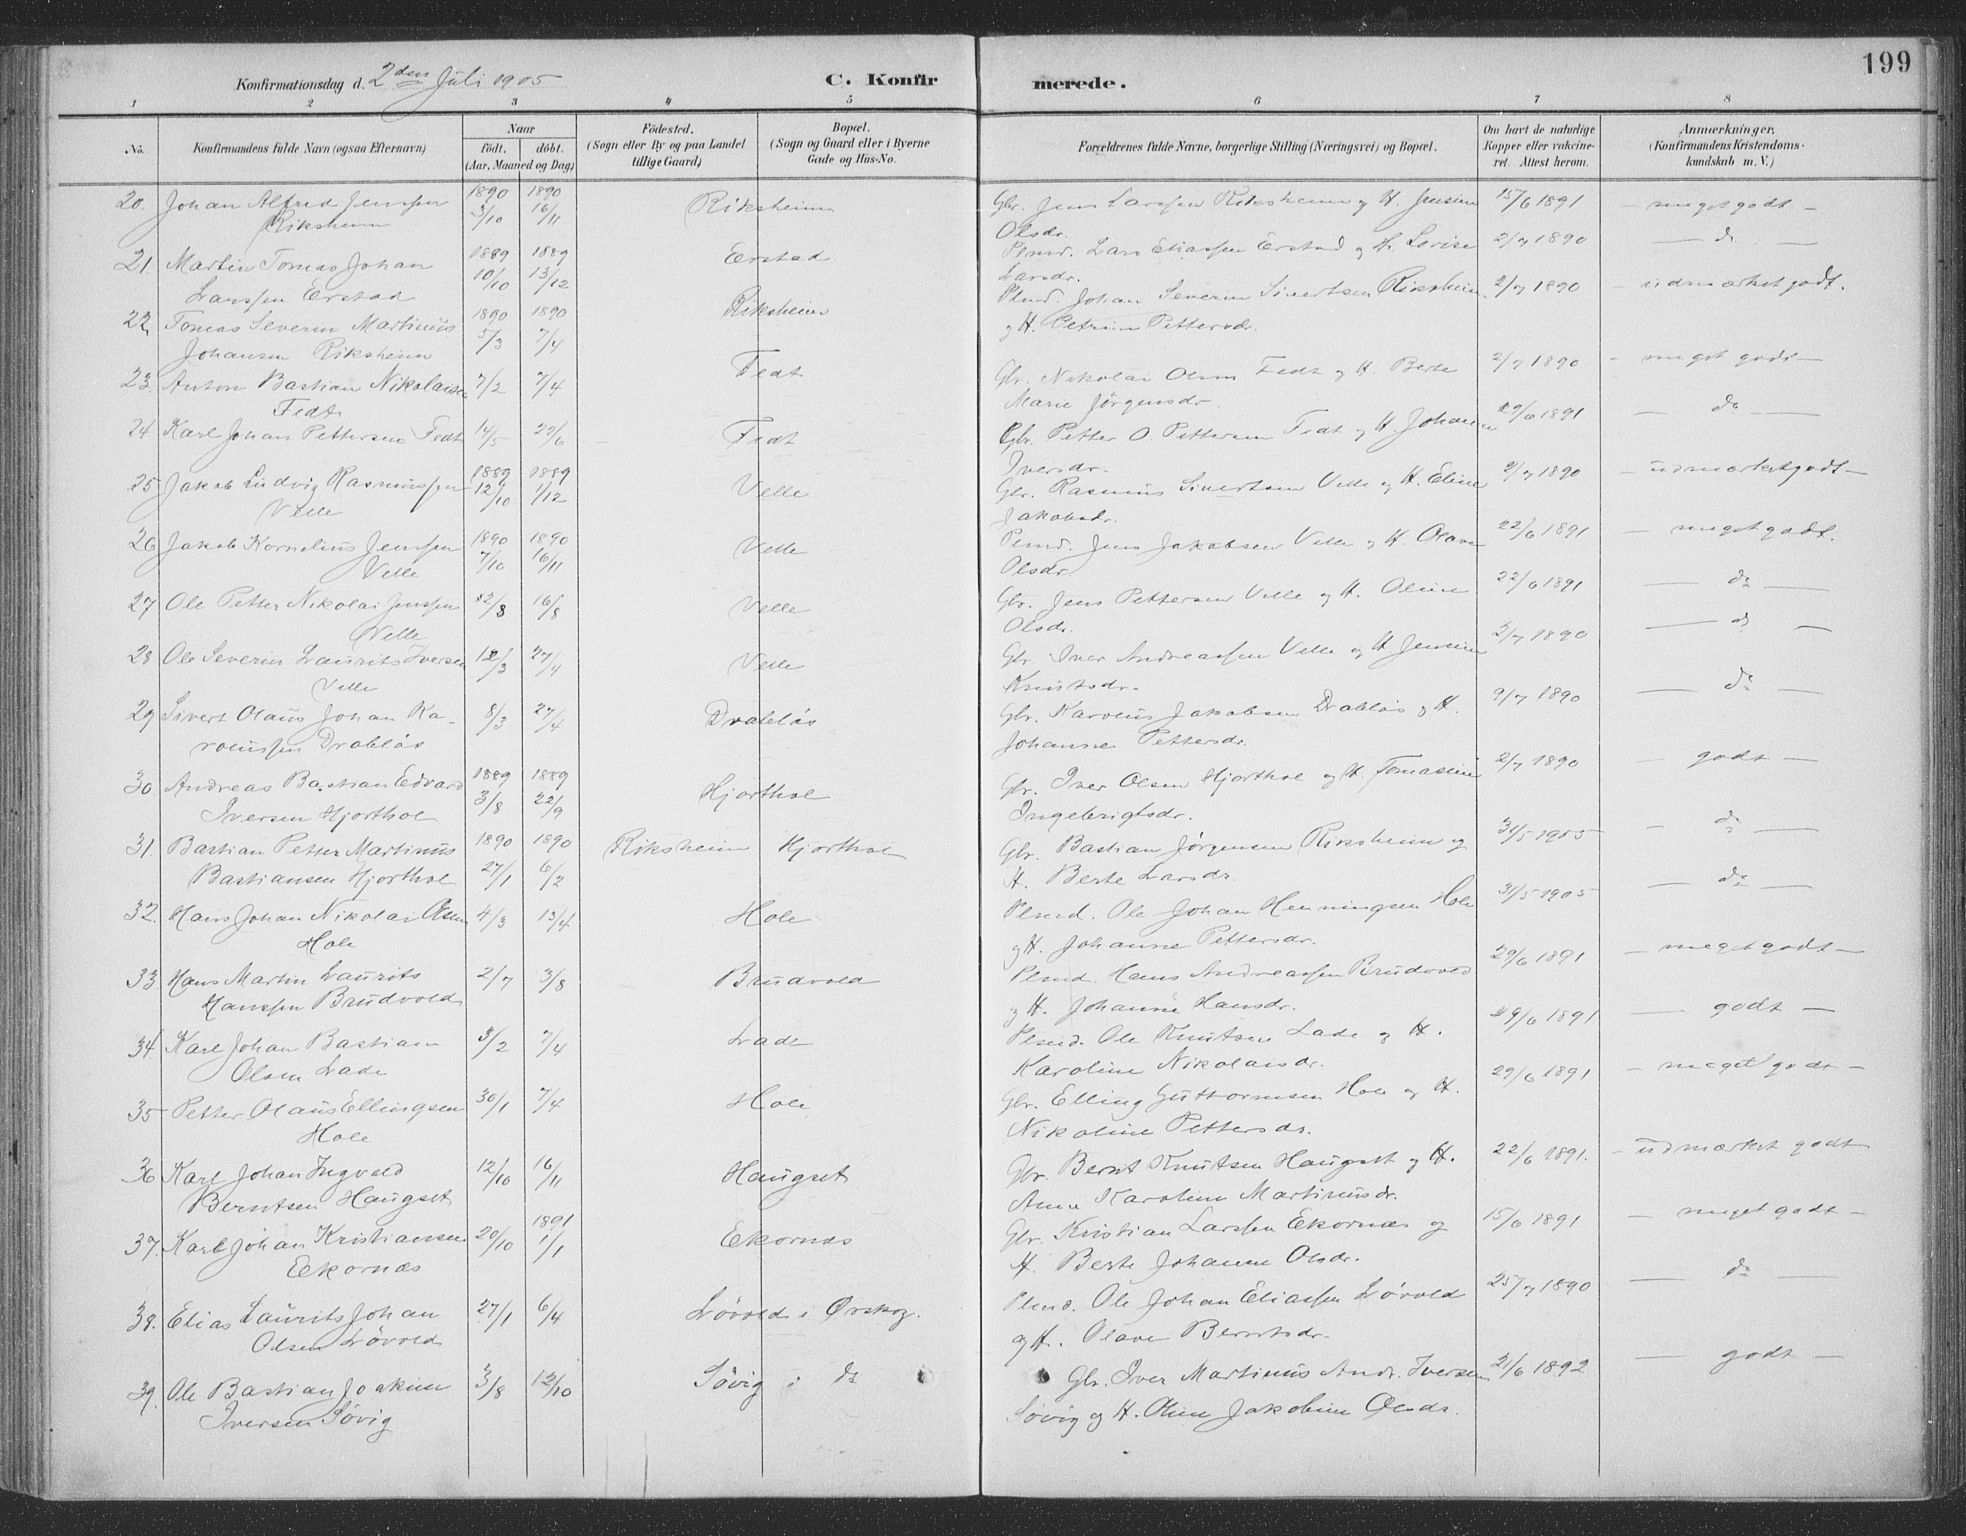 199
Konfirmationsdag d. 2den Juli 1905 C. Konfirmerede.
1 2 3 4 5 6 7 8
No. Konfirmandens fulde Navn (ogsaa Efternavn) Naar födt. döbt. (Aar, Maaned og Dag) Födested. (Sogn eller By og paa Landet tillige Gaard) Bopæl. (Sogn og Gaard eller i Byerne Gade og Hus-No. Forældrenes fulde Navne, borgerlige Stilling (Næringsvei) og Bopæl. Om havt de naturlige Kopper eller vakcineret. Attest herom. Anmerkninger. (Konfirmandens Kristendomskundskab m. V.)
20. Johan Alfred Jenssen 1890 3/10 1890 16/11 Riksheim Gbr. Jens Larssen Riksheim og H. Jensine 15/6 1891 – meget godt –
Riksheim Olsdr.
21. Martin Tomas Johan 1889 10/10 1889 13/12 Erstad Plmd. Lars Eliassen Erstad og H. Lovise 2/7 1890 — do —
Larssen Erstad Larsdr.
22. Tomas Severin Martinus 1890 5/3 1890 7/4 Riksheim Plmd. Johan Severin Sivertsen Riksheim 2/7 1890 – udmærket godt.
Johansen Riksheim og H. Petrine Pettersdr.
23. Anton Bastian Nikolaisen 7/2 7/4 Fedt Gbr. Nikolai Olsen Fedt og H. Berte 2/7 1890 – meget godt –
Fedt Marie Jörgensdr.
24 Karl Johan Pettersen Fedt 14/5 22/6 Fedt Gbr. Petter O. Pettersen Fedt og H. Johanne 29/6 1891 — do —
Iversdr.
25 Jakob Ludvig Rasmussen 1889 12/10 1889 1/12 Velle Gbr. Rasmus Sivertsen Velle og H. Eline 2/7 1890 – udmærket godt –
Velle Jakobsdr.
26 Jakob Kornelius Jenssen 1890 7/10 1890 16/11 Velle Plmd. Jens Jakobsen Velle og H. Olave 22/6 1891 – meget godt.
Velle Olsdr.
27 Ole Petter Nikolai Jenssen 12/8 16/8 Velle Gbr. Jens Pettersen Velle og H. Oline 22/6 1891 — do —
Velle Olsdr.
28 Ole Severin Laurits Iversen 12/3 27/4 Velle Gbr. Iver Andreassen Velle og H. Jensine 2/7 1890 — do —
Velle Knutsdr.
29 Sivert Olaus Johan Ka- 8/3 27/4 Drabløs Gbr. Karolus Jakobsen Drabløs og H. 9/7 1890 — do —
rolussen Drabløs Johanne Pettersdr.
30 Andreas Bastian Edvard 1889 3/8 1889 22/9 Hjorthol Gbr. Iver Olsen Hjorthol og H. Tomasine 2/7 1890 – godt –
Iversen Hjorthol Ingebrigtsdr.
31. Bastian Petter Martinus 1890 27/1 1890 6/2 Riksheim Hjorthol Gbr. Bastian Jørgensen Riksheim og 31/5 1905 — do —
Bastiansen Hjorthol H. Berte Larsdr.
32. Hans Johan Nikolai Olsen 4/3 13/4 Hole Plmd. Ole Johan Henningsen Hole 31/5 1905 — do —
Hole og H. Johanne Pettersdr.
33 Hans Martin Laurits 2/7 3/8 Brudvold Plmd. Hans Andreassen Brudvold 29/6 1891 – meget godt –
Hanssen Brudvold og H. Johanne Hansdr.
34 Karl Johan Bastian 3/2 7/4 Lade Plmd. Ole Knutsen Lade og H. 29/6 1891 – godt –
Olsen Lade Karoline Nikolaisdr.
35 Petter Olaus Ellingsen 30/1 7/4 Hole Gbr. Elling Guttormsen Hole og H. 29/6 1891 – meget godt –
Hole Nikoline Pettersdr.
36 Karl Johan Ingvald 12/10 16/11 Haugset Gbr. Bernt Knutsen Haugset og H. 22/6 1891. – udmærket godt
Berntsen Haugset Anne Karoline Martinusdr.
37. Karl Johan Kristiansen 20/10 1891 1/1 Ekornæs Gbr. Kristian Larssen Ekornæs og 15/6 1891 – meget godt –
Ekornæs H. Berte Johanne Olsdr.
38. Elias Laurits Johan 27/1 6/4 Løvold i Ørskog. Plmd. Ole Johan Eliassen Løvold 25/7 1890 — do —
Olsen Løvold og H. Olave Berntsdr.
39. Ole Bastian Joakim 3/8 12/10 Søvig i do Gbr. Iver Martinus Andr. Iversen 21/6 1892 – godt –
Iversen Søvig Søvig og H. Oline Jakobine Olsdr.